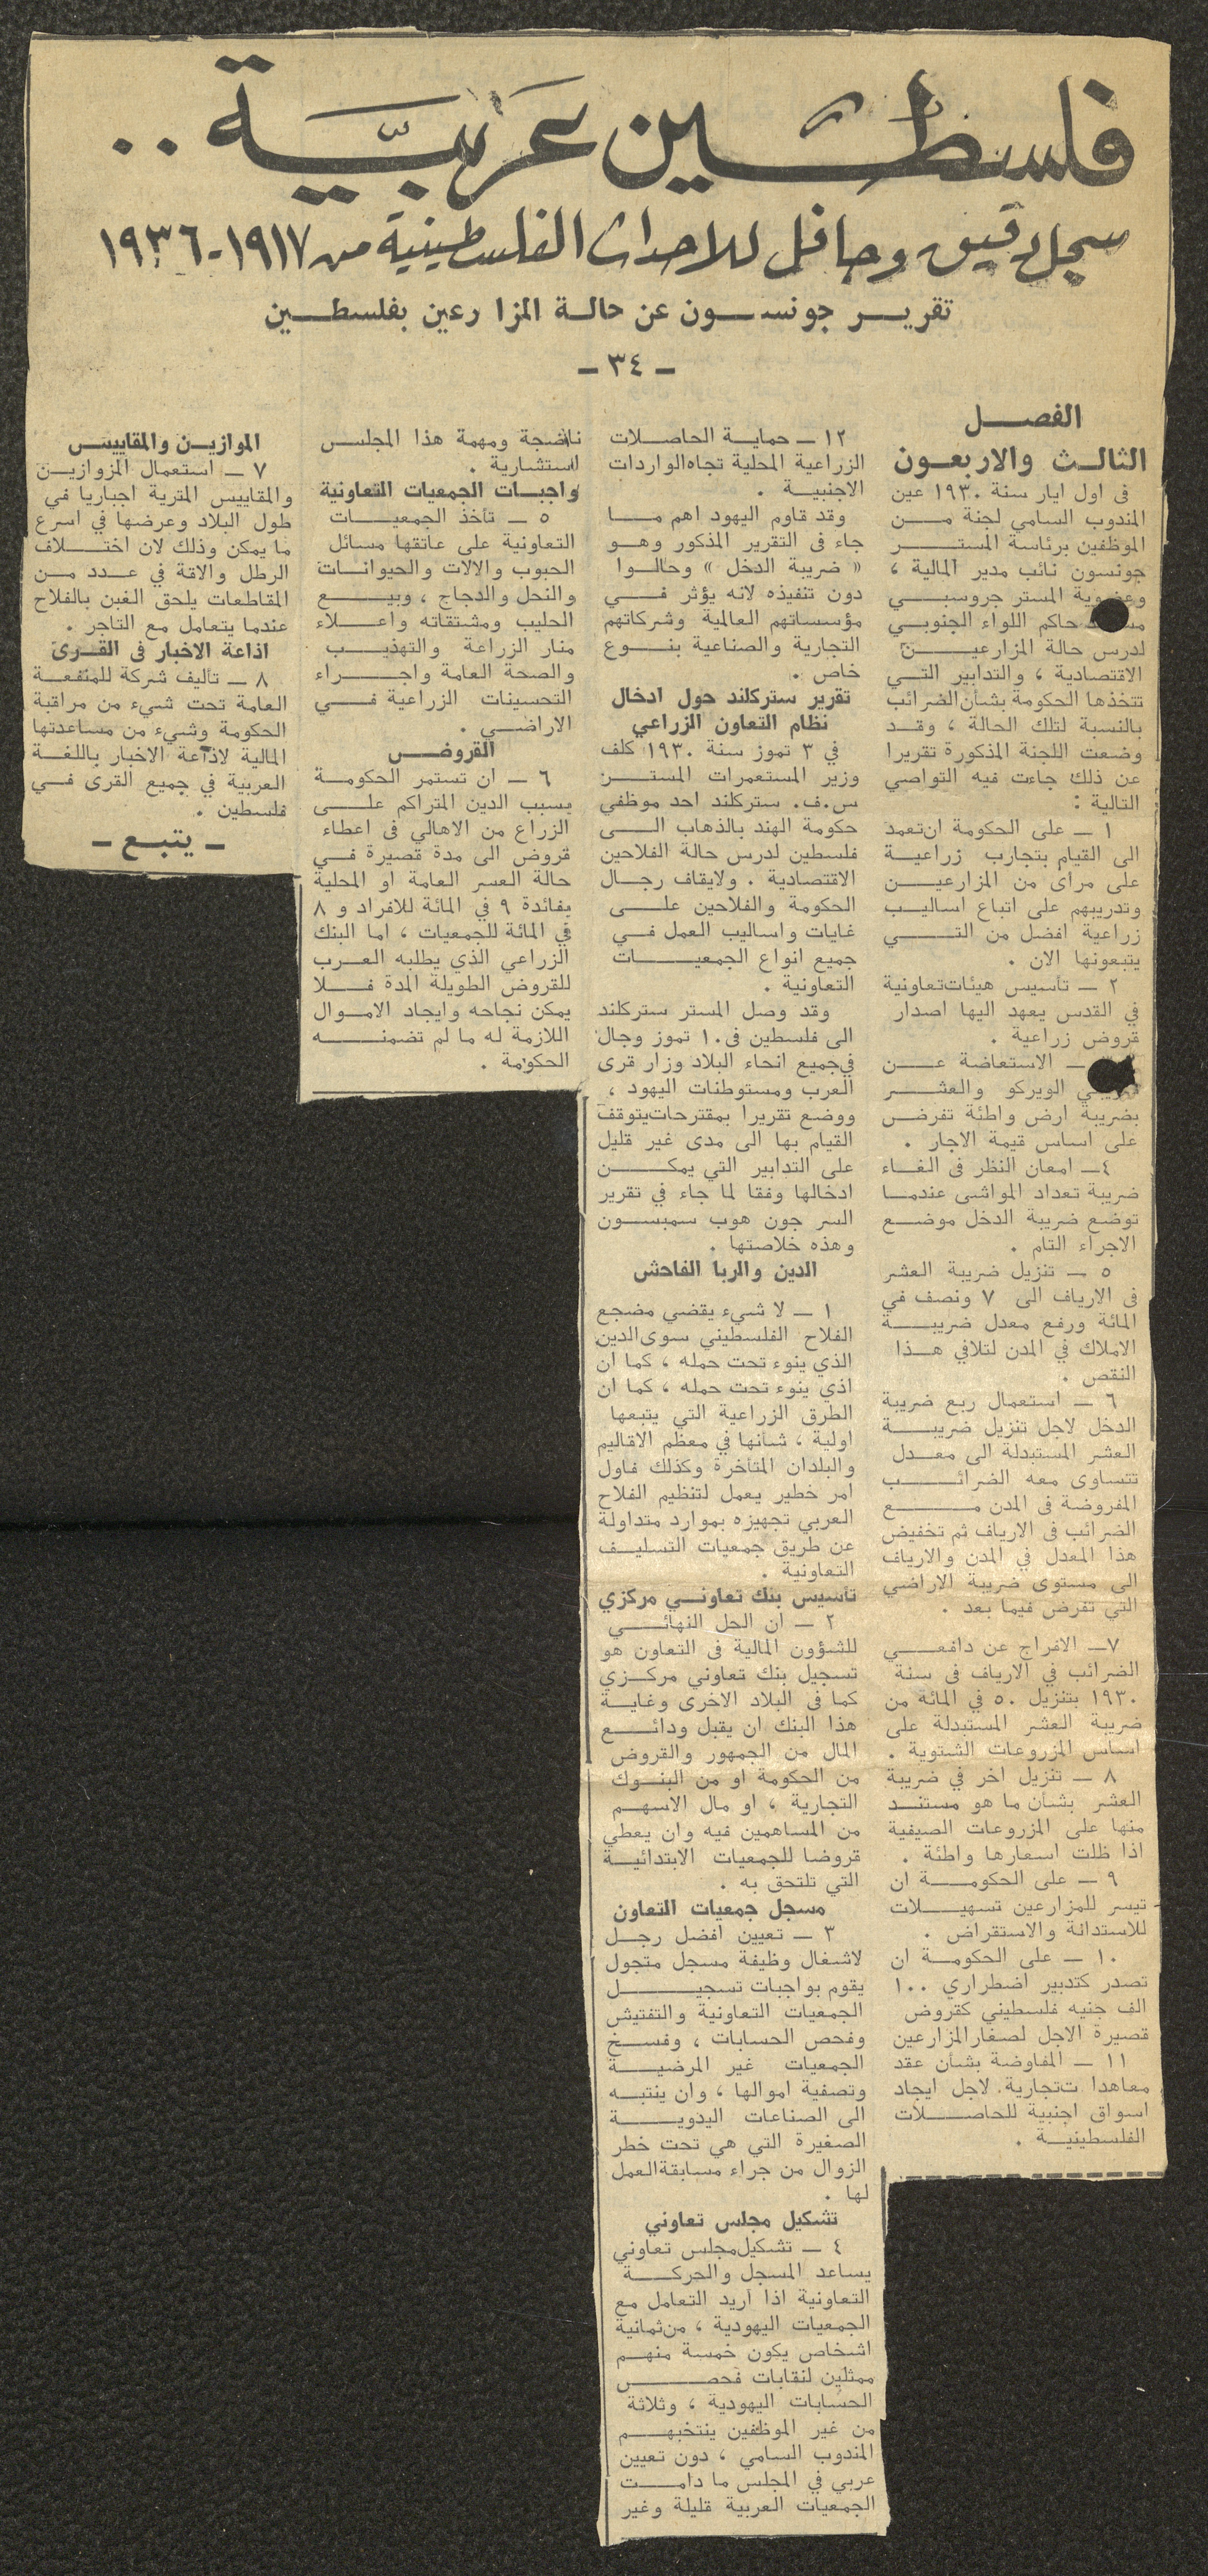 فلسطين عربية ..
سجل دقيق وحافل للاحداث الفلسطينية من ١٩١٧-١٩٣٦
تقرير جونسون عن حالة المزا رعين بفلسطين
- ٣٤ -
الفصل
الثالث والاربعون
فى اول ايار سنة ١٩٣٠ عين
المندوب السامي لجنة من
الموظفين برئاسة المستر
جونسون نائب مدير المالية ،
وعضوية المستر جروسبي
حاكم اللواء الجنوبي
لدرس حالة المزارعين
الاقتصادية ، والتدابير التي
تتخذها الحكومة بشأن الضرائب
بالنسبة لتلك الحالة ، وقد
وضعت اللجنة المذكورة تقريرا
عن ذلك جاءت فيه التواصي
التالية :
١ - على الحكومة ان تعمد
الى القيام بتجارب زراعية
على مرأى من المزارعين
وتدريبهم على اتباع اساليب
زراعية افضل من التي
يتبعونها الان .
٢ - تأسيس هيئات تعاونية
في القدس يعهد اليها اصدار
قروض زراعية .
- الاستعاضة عن
الويركو والعشر
بضريبة ارض واطئة تفرض
على اساس قيمة الاجار .
٤- امعان النظر فى الغاء
ضريبة تعداد المواشى عندما
توضع ضريبة الدخل موضع
الاجراء التام .
٥ - تنزيل ضريبة العشر
فى الارياف الى ٧ ونصف في
المائة ورفع معدل ضريبة
الاملاك في المدن لتلافي هذا
النقص .
٦ - استعمال ربع ضريبة
الدخل لاجل تنزيل ضريبة
العشر المستبدلة الى معدل
تتساوى معه الضرائب
المفروضة فى المدن مع
الضرائب فى الارياف ثم تخفيض
هذا المعدل في المدن والارياف
الى مستوى ضريبة الاراضي
التي تفرض فيما بعد .
٧- الافراج عن دافعي
الضرائب في الارياف فى سنة
١٩٣٠ بتنزيل ٥٠ في المائة من
ضريبة العشر المستبدلة على
اساس المزروعات الشتوية .
٨ - تنزيل اخر في ضريبة
العشر بشأن ما هو مستند
منها على المزروعات الصيفية
اذا ظلت اسعارها واطئة .
٩ - على الحكومة ان
تيسر للمزارعين تسهيلات
للاستدانة والاستقراض .
١٠ - على الحكومة ان
تصدر كتدبير اضطراري ١٠٠
الف جنيه فلسطيني كقروض
قصيرة الاجل لصغار المزارعين
١١ - المفاوضة بشأن عقد
معاهدا ت تجارية لاجل ايجاد
اسواق اجنبية للحاصلات
الفلسطينية .
١٢ - حماية الحاصلات
الزراعية المحلية تجاه الواردات
الاجنبية .
وقد قاوم اليهود اهم ما
جاء فى التقرير المذكور وهو
« ضريبة الدخل » وحالوا
دون تنفيذه لانه يؤثر في
مؤسساتهم العالمية وشركاتهم
التجارية والصناعية بنوع
خاص .
تقرير ستركلند حول ادخال
نظام التعاون الزراعي
في ٣ تموز سنة ١٩٣٠ كلف
وزير المستعمرات المستر
س.ف. ستركلند احد موظفي
حكومة الهند بالذهاب الى
فلسطين لدرس حالة الفلاحين
الاقتصادية . ولايقاف رجال
الحكومة والفلاحين على
غايات واساليب العمل في
جميع انواع الجمعيات
التعاونية .
وقد وصل المستر ستركلند
الى فلسطين فى ١٠ تموز وجال
في جميع انحاء البلاد وزار قرى
العرب ومستوطنات اليهود ،
ووضع تقريرا بمقترحات يتوقف
القيام بها الى مدى غير قليل
على التدابير التي يمكن
ادخالها وفقا لما جاء في تقرير
السر جون هوب سمبسون
وهذه خلاصتها .
الدين والربا الفاحش
١ - لا شيء يقضي مضجع
الفلاح الفلسطيني سوى الدين
الذي ينوء تحت حمله ، كما ان
اذي ينوء تحت حمله ، كما ان
الطرق الزراعية التي يتبعها
اولية ، شأنها في معظم الاقاليم
والبلدان المتأخرة وكذلك فاول
امر خطير يعمل لتنظيم الفلاح
العربي تجهيزه بموارد متداولة
عن طريق جمعيات التسليف
التعاونية .
تأسيس بنك تعاوني مركزي
٢ - ان الحل النهائي
للشؤون المالية فى التعاون هو
تسجيل بنك تعاوني مركزي
كما فى البلاد الاخرى وغاية
هذا البنك ان يقبل ودائع
المال من الجمهور والقروض
من الحكومة او من البنوك
التجارية ، او مال الاسهم
من المساهمين فيه وان يعطي
قروضا للجمعيات الابتدائية
التي تلتحق به .
مسجل جمعيات التعاون
٣ - تعيين افضل رجل
لاشغال وظيفة مسجل متجول
يقوم بواجبات تسجيل
الجمعيات التعاونية والتفتيش
وفحص الحسابات ، وفسخ
الجمعيات غير المرضية
وتصفية اموالها ، وان ينتبه
الى الصناعات اليدوية
الصغيرة التي هي تحت خطر
الزوال من جراء مسابقة العمل
لها .
تشكيل مجلس تعاوني
٤ - تشكيل مجلس تعاوني
يساعد المسجل والحركة
التعاونية اذا أريد التعامل مع
الجمعيات اليهودية ، من ثمانية
اشخاص يكون خمسة منهم
ممثلين لنقابات فحص
الحسابات اليهودية ، وثلاثة
من غير الموظفين ينتخبهم
المندوب السامي ، دون تعيين
عربي في المجلس ما دامت
الجمعيات العربية قليلة وغير
ناضجة ومهمة هذا المجلس
استشارية .
واجبات الجمعيات التعاونية
٥ - تأخذ الجمعيات
التعاونية على عاتقها مسائل
الحبوب والالات والحيوانات
والنحل والدجاج ، وبيع
الحليب ومشتقاته واعلاء
منار الزراعة والتهذيب
والصحة العامة واجراء
التحسينات الزراعية في
الاراضي .
القروض
٦ - ان تستمر الحكومة
بسبب الدين المتراكم على
الزراع من الاهالي فى اعطاء
قروض الى مدة قصيرة في
حالة العسر العامة او المحلية
بفائدة ٩ في المائة للافراد و ٨
في المائة للجمعيات ، اما البنك
الزراعي الذي يطلبه العرب
للقروض الطويلة المدة فلا
يمكن نجاحه وايجاد الاموال
اللازمة له ما لم تضمنه
الحكومة .
الموازين والمقاييس
٧ - استعمال المزوازين
والمقاييس المترية اجباريا في
طول البلاد وعرضها في اسرع
ما يمكن وذلك لان اختلاف
الرطل والاقة في عدد من
المقاطعات يلحق الغبن بالفلاح
عندما يتعامل مع التاجر .
اذاعة الاخبار فى القرى
٨ - تأليف شركة للمنفعة
العامة تحت شيء من مراقبة
الحكومة وشيء من مساعدتها
المالية لاذاعة الاخبار باللغة
العربية في جميع القرى في
فلسطين .
- يتبع -